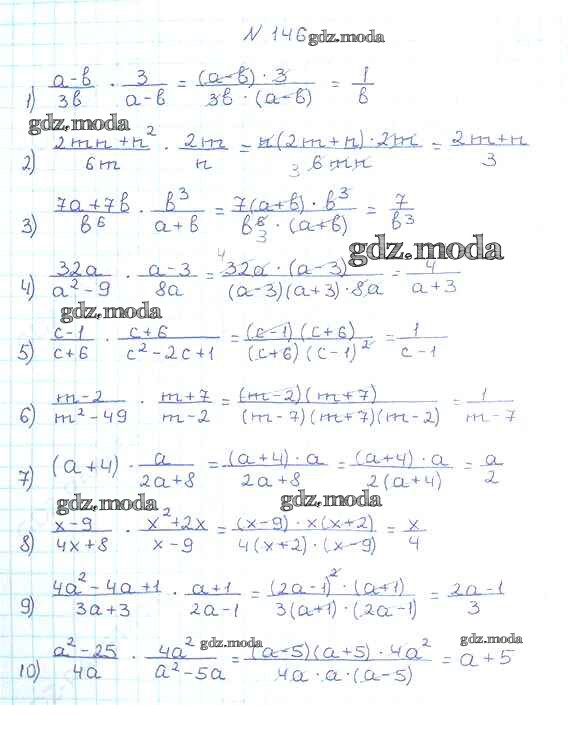 N 146 gdz.moda
1) (a-b)/(3b) · 3/(a-b) = ((a-b) · 3)/(3b · (a-b)) = 1/b
gdz.moda
2) (2mn + n²)/(6m) · (2m)/n = (n(2m+n) · 2m)/(3 6mn) = (2m+n)/3
3) (7a+7b)/(b⁶) · b³/(a+b) = (7(a+b) · b³)/(b⁶ 3 · (a+b)) = 7/b³
gdz.moda
4) (32a)/(a²-9) · (a-3)/(8a) = (4 32a · (a-3))/((a-3)(a+3) · 8a) = 4/(a+3)
gdz.moda
5) (c-1)/(c+6) · (c+6)/(c²-2c+1) = ((c-1)(c+6))/((c+6)(c-1)²) = 1/(c-1)
6) (m-2)/(m²-49) · (m+7)/(m-2) = ((m-2)(m+7))/((m-7)(m+7)(m-2)) = 1/(m-7)
7) (a+4) · a/(2a+8) = ((a+4) · a)/(2a+8) = ((a+4) · a)/(2(a+4)) = a/2
gdz.moda gdz.moda
8) (x-9)/(4x+8) · (x²+2x)/(x-9) = ((x-9) · x(x+2))/(4(x+2) · (x-9)) = x/4
9) (4a²-4a+1)/(3a+3) · (a+1)/(2a-1) = ((2a-1)² · (a+1))/(3(a+1) · (2a-1)) = (2a-1)/3
gdz.moda gdz.moda
10) (a²-25)/(4a) · (4a²)/(a²-5a) = ((a-5)(a+5) · 4a²)/(4a · a · (a-5)) = a+5